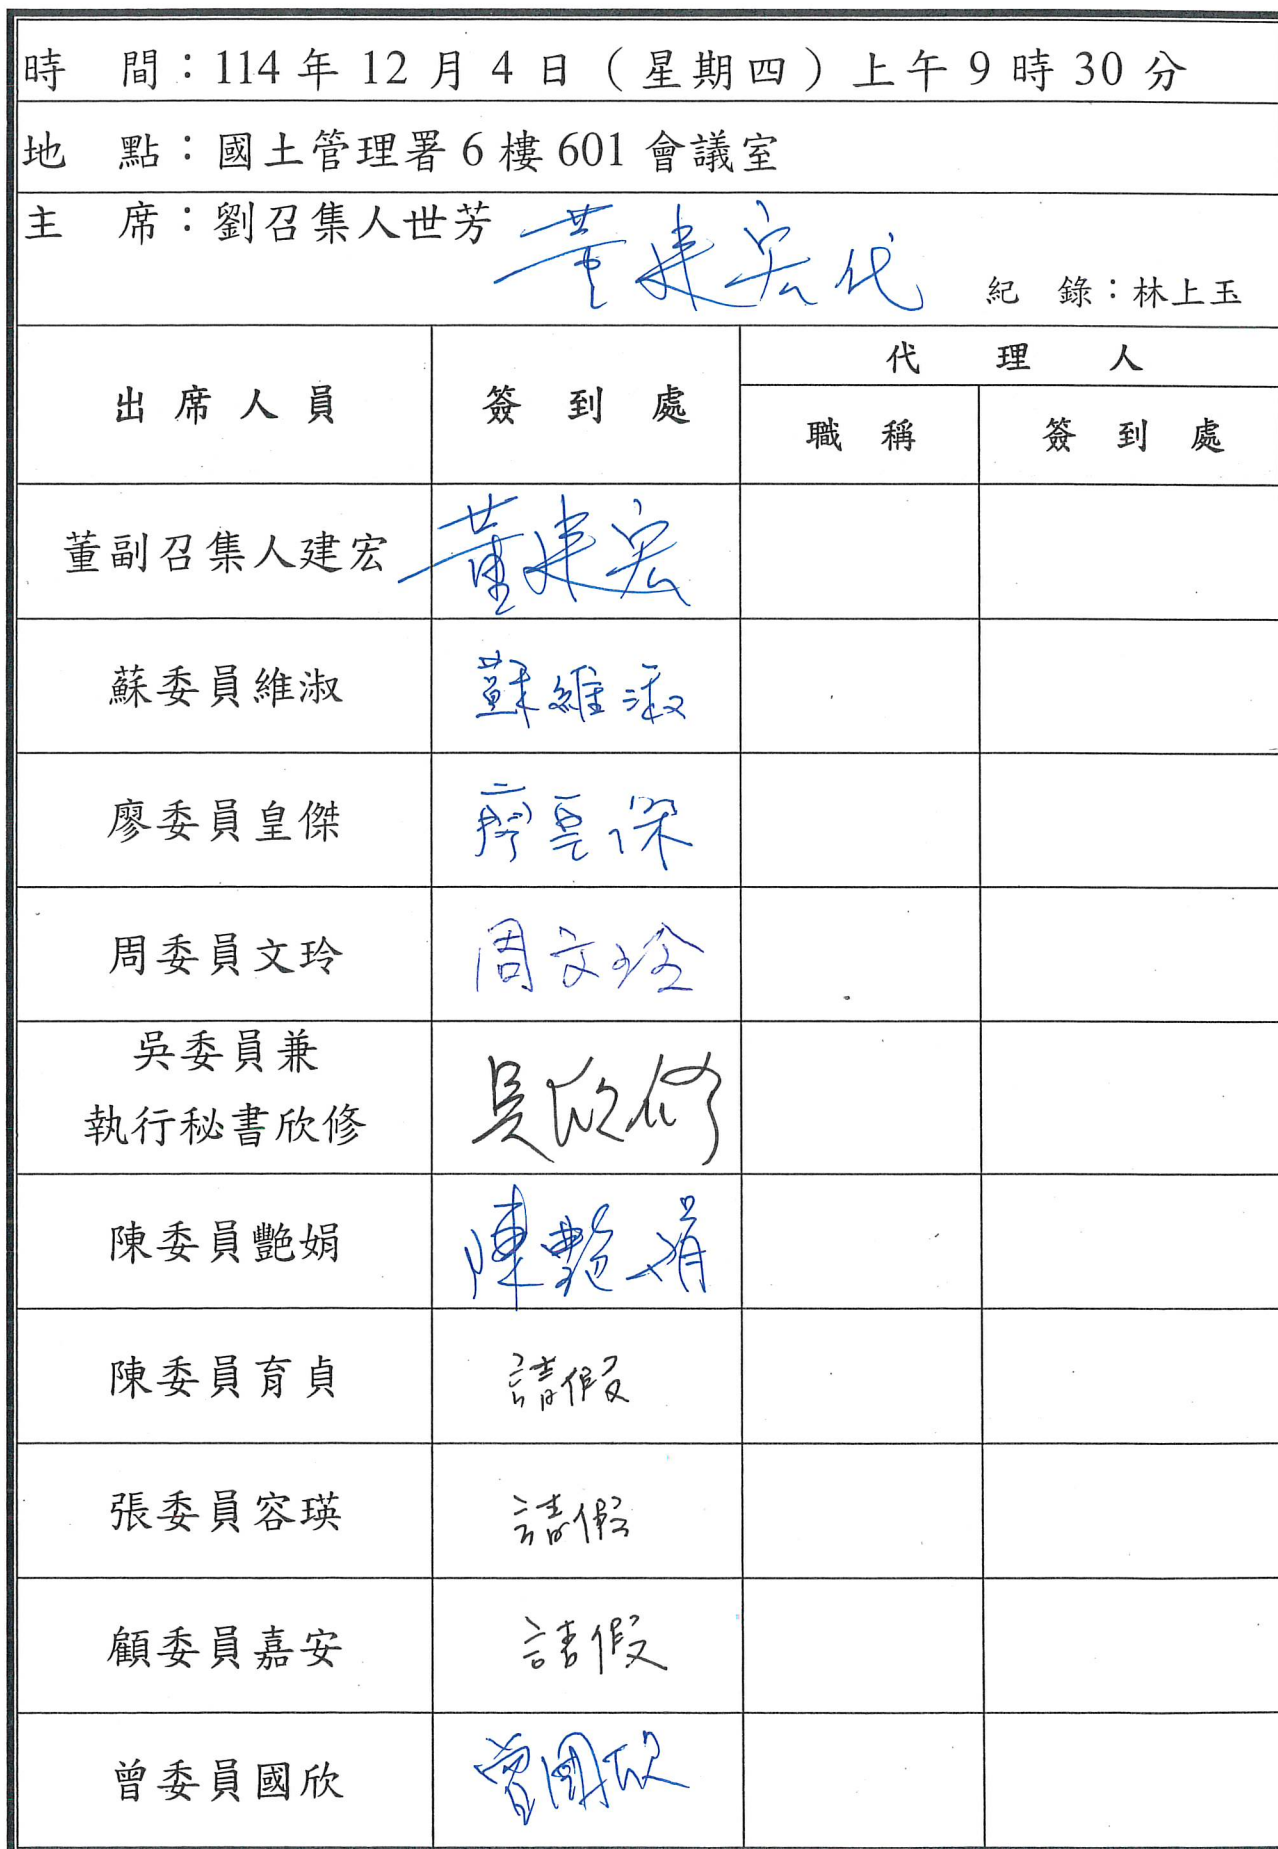 時　間：114 年 12 月 4 日（星期四）上午 9 時 30 分
地　點：國土管理署 6 樓 601 會議室
主　席：劉召集人世芳 董建宏代
紀　錄：林上玉
出席人員 簽到處 代理人
職稱 簽到處
董副召集人建宏 董建宏
蘇委員維淑 蘇維淑
廖委員皇傑 廖皇傑
周委員文玲 周文玲
吳委員兼
執行秘書欣修 吳欣修
陳委員艷娟 陳艷娟
陳委員育貞 請假
張委員容瑛 請假
顧委員嘉安 請假
曾委員國欣 曾國欣